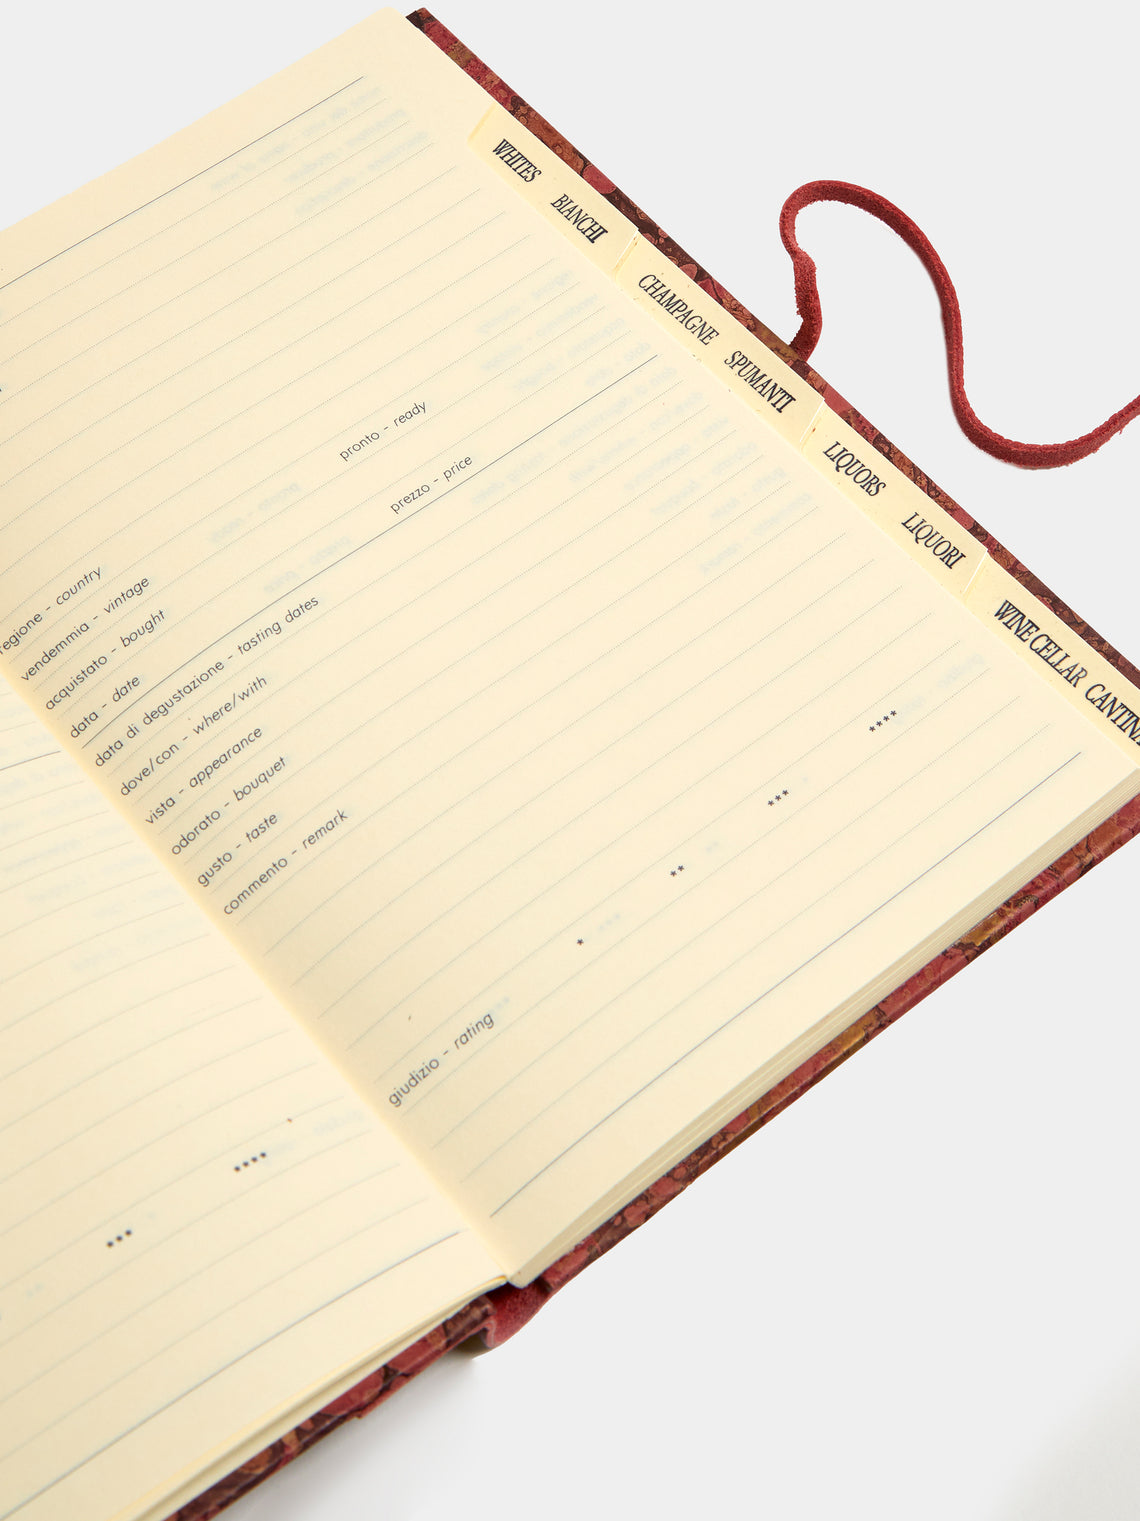 WHITES BIANCHI
CHAMPAGNE SPUMANTI
LIQUORS LIQUORI
WINE CELLAR CANTINA
pronto - ready
prezzo - price
regione - country
vendemmia - vintage
acquistato - bought
data - date
data di degustazione - tasting dates
dove/con - where/with
vista - appearance
odorato - bouquet
gusto - taste
commento - remark
giudizio - rating * ** *** ****
*** ****